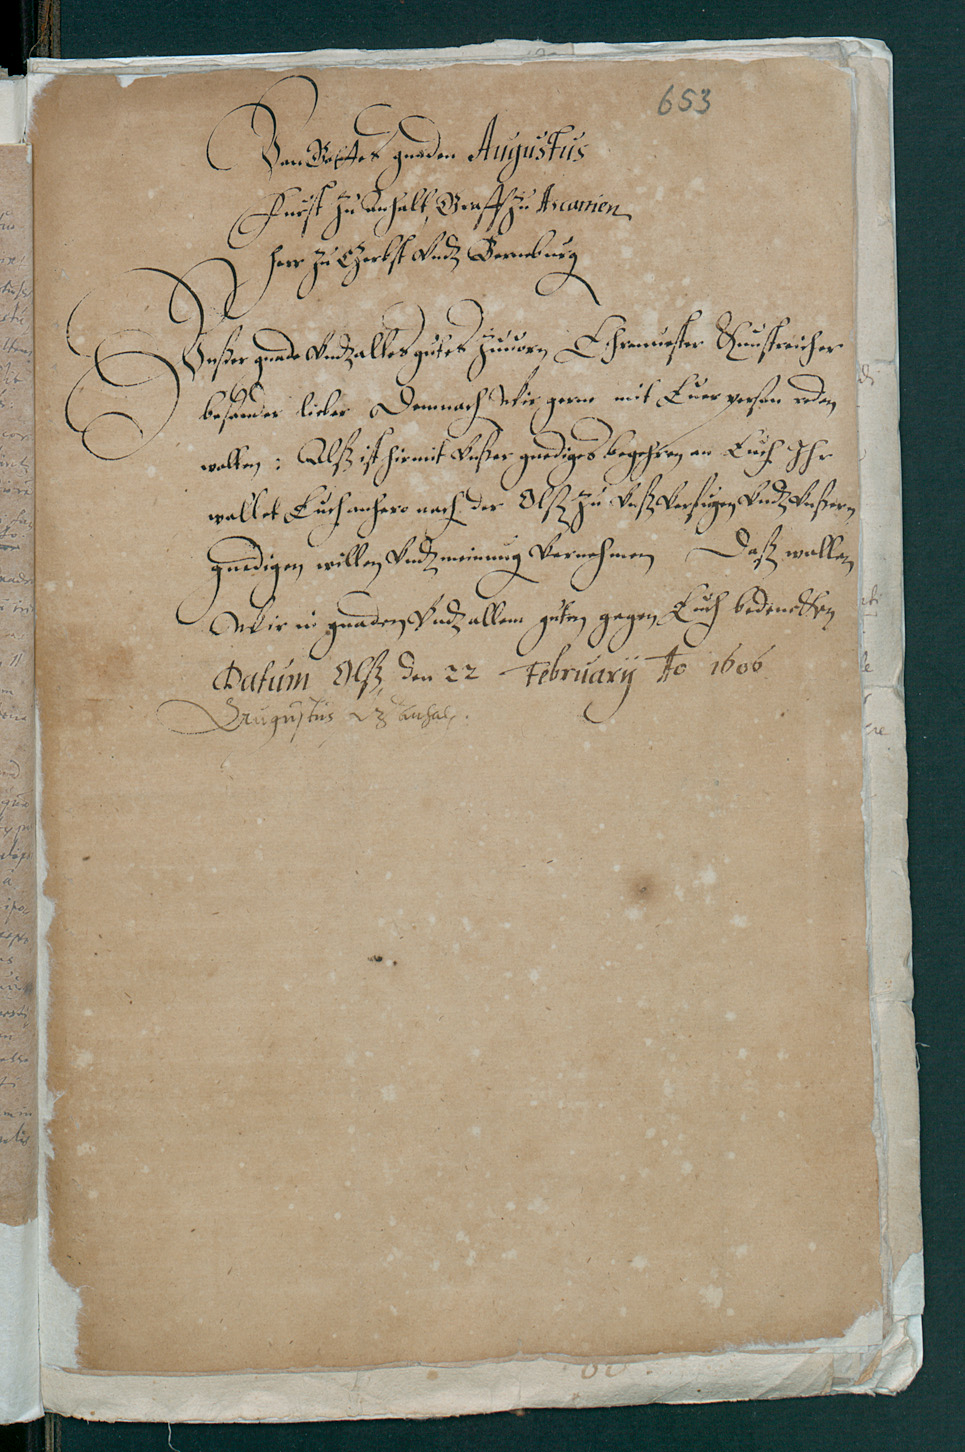 653
Von Gottes gnaden Augustus
Fürst zu Anhalt, Graff zu Ascanien
Herr zu Zerbst vndt Bernburg
Vnßer gnade vndt alles gutes zuuorn, Ehrnuester Kunstreicher
besonder lieber Demnach Wir gerne mit Euer person reden
wolten: Alß ist hirmit vnßer gnediges begehren an Euch Ihr
wollet Euch anhero nach der Olß zu vnß verfugen vndt vnßern
gnedigen willen vndt meinung vernehmen Daß wollen
Wir in gnaden vndt allem guten gegen Euch bedencken
Datum Olß, den 22 February Ao 1606
Augustus F z Anhalt.